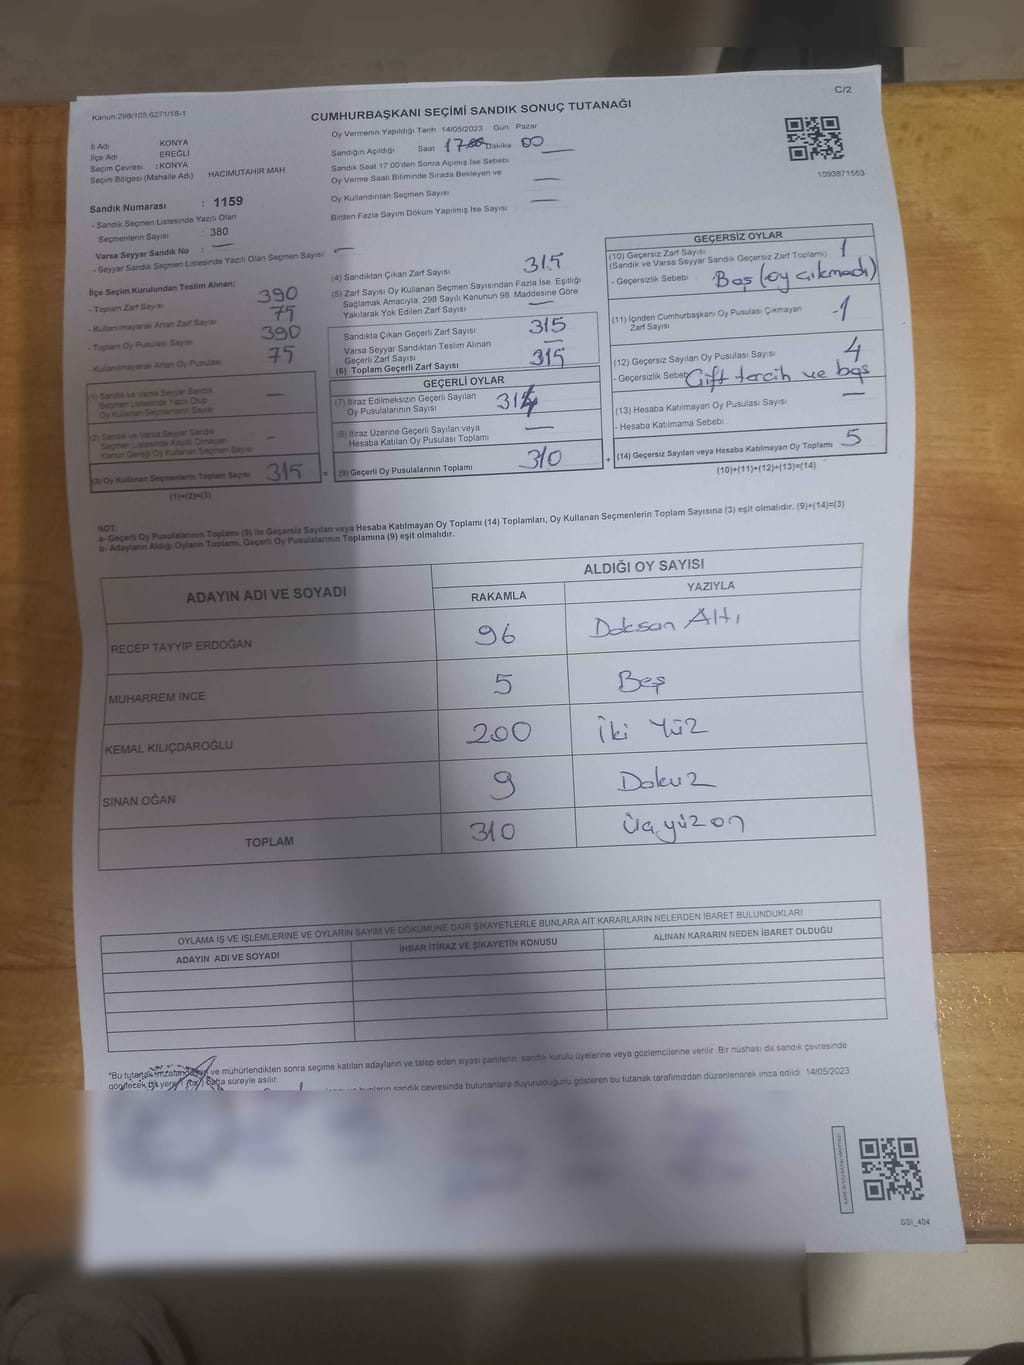 Kanun:298/105,6271/18-1
C/2
CUMHURBAŞKANI SEÇİMİ SANDIK SONUÇ TUTANAĞI
İl Adı : KONYA
İlçe Adı : EREĞLİ
Seçim Çevresi : KONYA
Seçim Bölgesi (Mahalle Adı) HACIMUTAHIR MAH
Oy Vermenin Yapıldığı Tarih 14/05/2023 Gün Pazar
Sandığın Açıldığı Saat 17.00 Dakika 00
Sandık Saat 17:00'den Sonra Açımış İse Sebebi
Oy Verme Saati Bitiminde Sırada Bekleyen ve
Oy Kullandırılan Seçmen Sayısı
Birden Fazla Sayım Döküm Yapılmış İse Sayısı
1093871553
Sandık Numarası : 1159
- Sandık Seçmen Listesinde Yazılı Olan
Seçmenlerin Sayısı : 380
Varsa Seyyar Sandık No : —
- Seyyar Sandık Seçmen Listesinde Yazılı Olan Seçmen Sayısı : —
İlçe Seçim Kurulundan Teslim Alınan:
- Toplam Zarf Sayısı 390
- Kullanılmayarak Artan Zarf Sayısı 75
- Toplam Oy Pusulası Sayısı 390
- Kullanılmayarak Artan Oy Pusulası 75
(1) Sandık ve Varsa Seyyar Sandık
Seçmen Listesinde Yazılı Olup
Oy Kullanan Seçmenlerin Sayısı —
(2) Sandık ve Varsa Seyyar Sandık
Seçmen Listesinde Kayıtlı Olmayan
Kanun Gereği Oy Kullanan Seçmen Sayısı —
(3) Oy Kullanan Seçmenlerin Toplam Sayısı 315 =
(1)+(2)=(3)
(4) Sandıktan Çıkan Zarf Sayısı 315
(5) Zarf Sayısı Oy Kullanan Seçmen Sayısından Fazla İse, Eşitliği
Sağlamak Amacıyla, 298 Sayılı Kanunun 98. Maddesine Göre
Yakılarak Yok Edilen Zarf Sayısı —
Sandıkta Çıkan Geçerli Zarf Sayısı 315
Varsa Seyyar Sandıktan Teslim Alınan
Geçerli Zarf Sayısı —
(6) Toplam Geçerli Zarf Sayısı 315
GEÇERLİ OYLAR
(7) İtiraz Edilmeksizin Geçerli Sayılan
Oy Pusulalarının Sayısı 314
(8) İtiraz Üzerine Geçerli Sayılan veya
Hesaba Katılan Oy Pusulası Toplamı —
(9) Geçerli Oy Pusulalarının Toplamı 310 +
GEÇERSİZ OYLAR
(10) Geçersiz Zarf Sayısı
(Sandık ve Varsa Seyyar Sandık Geçersiz Zarf Toplamı) 1
- Geçersizlik Sebebi : Boş (oy çıkmadı)
(11) İçinden Cumhurbaşkanı Oy Pusulası Çıkmayan
Zarf Sayısı -1
(12) Geçersiz Sayılan Oy Pusulası Sayısı 4
- Geçersizlik Sebebi Çift tercih ve boş
(13) Hesaba Katılmayan Oy Pusulası Sayısı —
- Hesaba Katılmama Sebebi :
(14) Geçersiz Sayılan veya Hesaba Katılmayan Oy Toplamı 5
(10)+(11)+(12)+(13)=(14)
NOT:
a- Geçerli Oy Pusulalarının Toplamı (9) ile Geçersiz Sayılan veya Hesaba Katılmayan Oy Toplamı (14) Toplamları, Oy Kullanan Seçmenlerin Toplam Sayısına (3) eşit olmalıdır. (9)+(14)=(3)
b- Adayların Aldığı Oyların Toplamı, Geçerli Oy Pusulalarının Toplamına (9) eşit olmalıdır.
ADAYIN ADI VE SOYADI
ALDIĞI OY SAYISI
RAKAMLA YAZIYLA
RECEP TAYYİP ERDOĞAN 96 Doksan Altı
MUHARREM İNCE 5 Beş
KEMAL KILIÇDAROĞLU 200 İki Yüz
SİNAN OĞAN 9 Dokuz
TOPLAM 310 Üçyüzon
OYLAMA İŞ VE İŞLEMLERİNE VE OYLARIN SAYIM VE DÖKÜMÜNE DAİR ŞİKAYETLERLE BUNLARA AİT KARARLARIN NELERDEN İBARET BULUNDUKLARI
ADAYIN ADI VE SOYADI İHBAR İTİRAZ VE ŞİKAYETİN KONUSU ALINAN KARARIN NEDEN İBARET OLDUĞU
*Bu tutanak imzalandıktan ve mühürlendikten sonra seçime katılan adayların ve talep eden siyasi partilerin sandık kurulu üyelerine veya gözlemcilerine verilir. Bir nüshası da sandık çevresinde
görülecek bir yere süreyle asılır.
bunların sandık çevresinde bulunanlara duyurulduğunu gösteren bu tutanak tarafımızdan düzenlenerek imza edildi. 14/05/2023
SSt_404